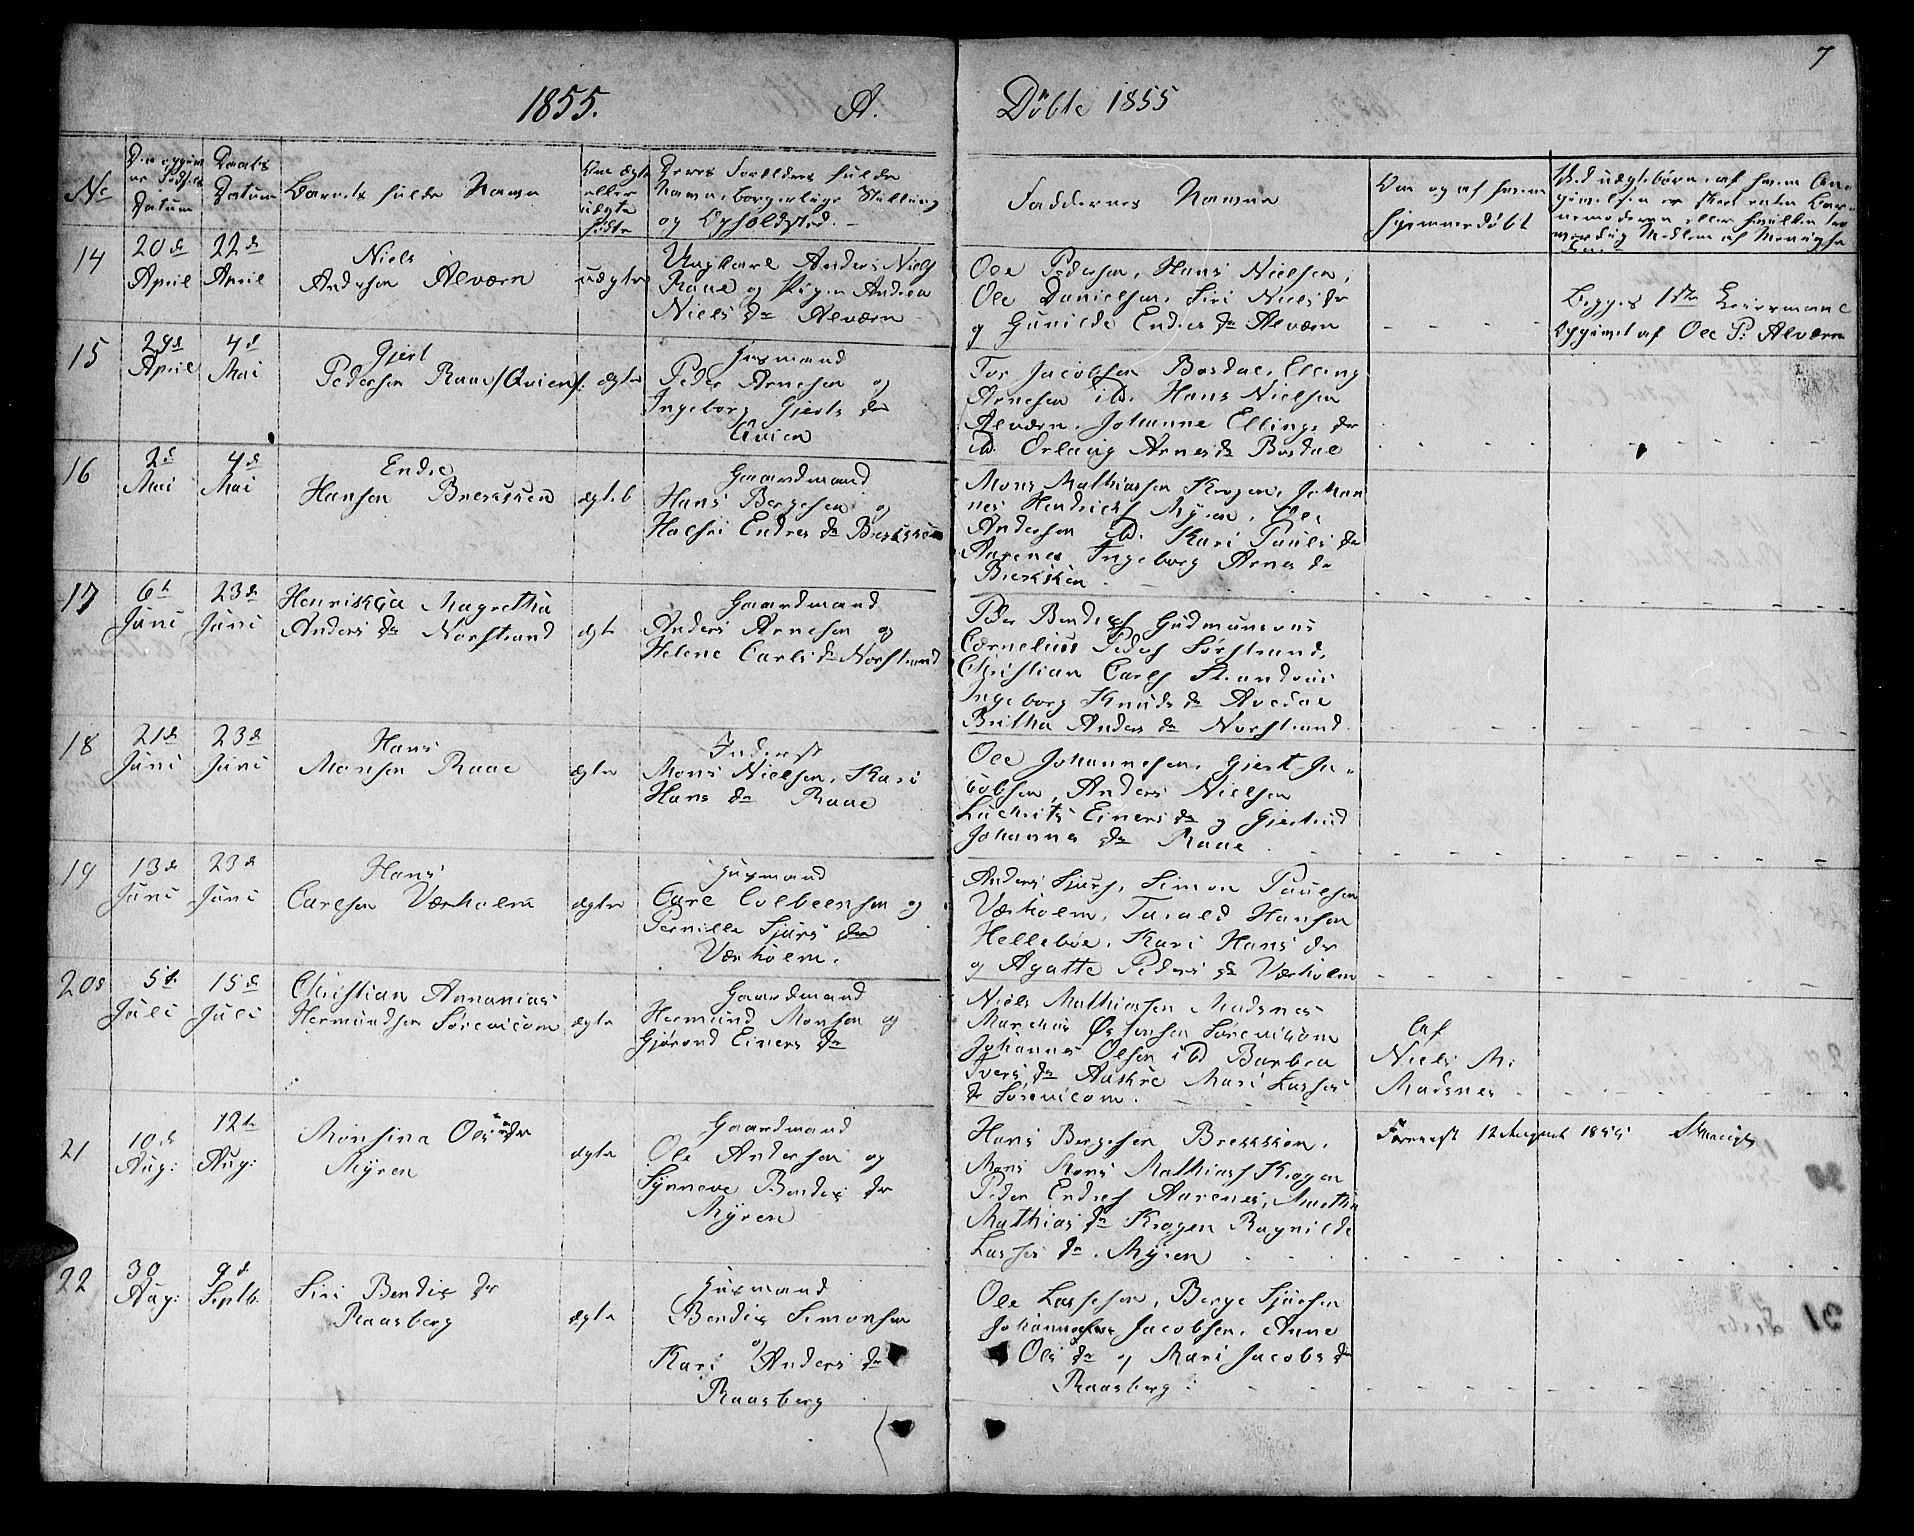 7
1855. A.
Döbte 1855
No
Datum
Daabs Datum
Barnets fulde Navn
Om ægte eller uægte født
Deres Forældres fulde
Navn, borgerlige Stilling
og Opholdsted. -
Faddernes Navne
Om og af hvem
hjemmedøbt
14
20de April
22de April
Niels
Andersen Alværn
uægte
Ungkarl Anders Niels
Raae og Pigen Andrea
Niels dr Alværn
Ole Pedersen, Hans Nielsen,
Ole Danielsen, Siri Niels dr
og Gunilde Endres dr Alværn
Begges 1ste Leiermaal
Opgivet af Ole P: Alværn
15
29de April
4de Mai
Gjert
Pedersen Raae /Qvien/
ægte
Husmand
Peder Arnesen og
Ingeborg Gjerts dr
Qvien
Tor Jacobsen Bosdal, Elling
Arnesen ibd. Hans Nielsen
Alværn, Johanne Ellings dr
ibd. Orlaug Arnes dr Bosdal
16
2de Mai
4de Mai
Endre
Hansen Breksken
ægteb
Gaardmand
Hans Bergesen og
Endres dr Breksken
Mons Mathiassen Krogen, Johan
nes Hendriks Myren, Ole
Andersen ibd. Kari Pauls dr
Aarenes Ingeborg Arne dr
Breksken
17
6te Juni
23de Juni
Magretha
Anders dr Norstrand
ægte
Gaardmand
Anders Arnesen og
Helene Carls dr Norstrand
Peder Bendix
Cornelius Peders Sörstrand,
Christian Carls
Ingeborg Knuds dr
Britha Anders dr Norstrand.
18
21de Juni
23de Juni
Hans
Monsen Raae
ægte
Inderst
Mons Nielsen, Kari
Hans dr Raae
Ole Johannesen, Gjert Ja-
cobsen, Anders Nielsen
Einers dr og Gjertrud
Johannes dr Raae
19
13de Juni
23de Juni
Hans
Carlsen Værholm
ægte
Husmand
Carl Colbeensen og
Pernille Sjurs dr
Værholm.
Anders Sjurs, Simon Paulsen
Værholm, Tarald Hansen
Hellebøe, Kari Hans dr
og Agatte Peders dr Værholm
20
5te Juli
15de Juli
Christian Annanias
Hermundsen Sørevicom
ægte
Gaardmand
Hermund Monsen og
Gjørond Einers dr
Niels Mathiasen Madsnes
Sørevikom
Johannes Olsen ibd Barbra
Ivers dr Mari Lasses
dr Sørevicom.
Af
Niels M:
Madsnes
21
10de Aug:
12te Aug:
Monsina Ols dr
Myren
ægte
Gaardmand
Ole Andersen og
Synneve Bendix dr
Myren
Hans Bergesen Brekskén,
Mons Mons Mathias Krogen
Peder Endres Aarenes, Martha
Mathias dr Krogen Ragnilde
Lasses dr. Myren
12 August 1855
22
30 Aug:
9de Septb.
Siri Bendix dr
Raasberg
ægte
Husmand
Bendix Simonsen
og
Kari Anders dr
Raasberg
Ole Lassesen, Berge Sjursen
Johannesen Jacobsen, Anne
Ols dr og Mari Jacobs dr
Raasberg